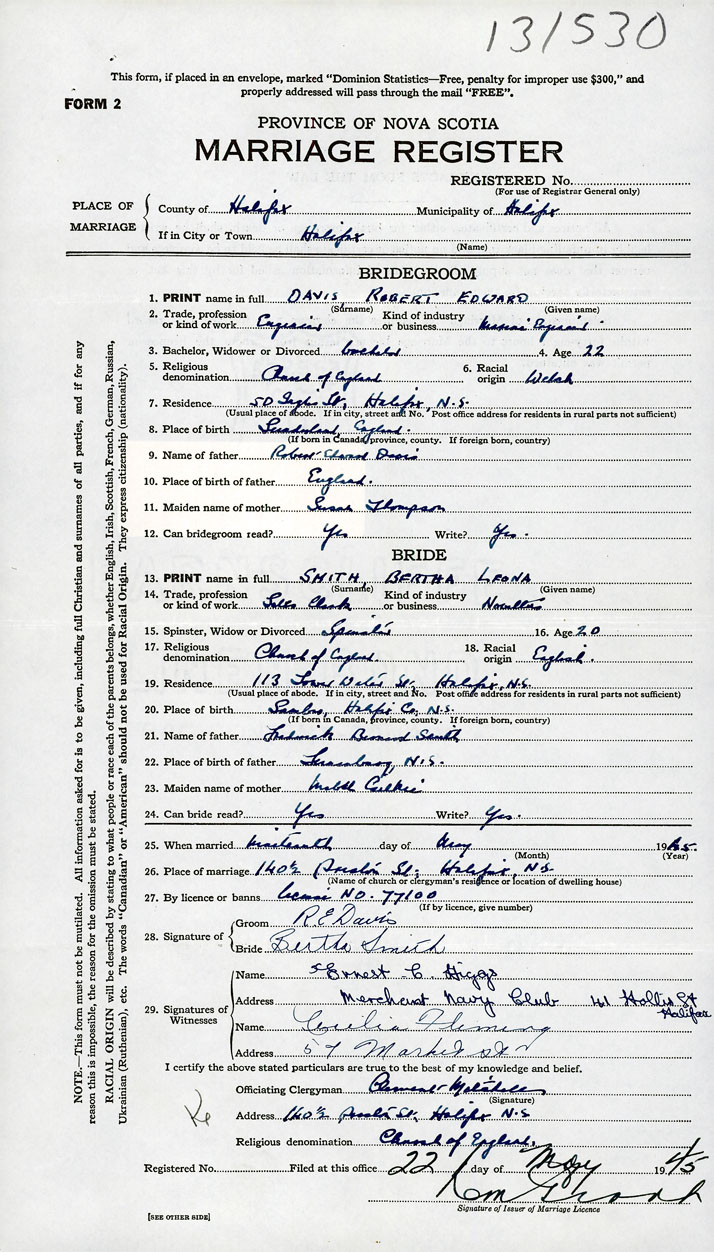 131530
This form, if placed in an envelope, marked "Dominion Statistics—Free, penalty for improper use $300," and
properly addressed will pass through the mail "FREE".
FORM 2
PROVINCE OF NOVA SCOTIA
MARRIAGE REGISTER
REGISTERED No.
(For use of Registrar General only)
PLACE OF MARRIAGE
County of Halifax Municipality of Halifax
If in City or Town Halifax
(Name)
BRIDEGROOM
1. PRINT name in full DAVIS ROBERT EDWARD
(Surname) (Given name)
2. Trade, profession or kind of work Engineer Kind of industry or business Marine Engineer
3. Bachelor, Widower or Divorced bachelor 4. Age 22
5. Religious denomination Church of England 6. Racial origin Welsh
7. Residence 50 Inglis St., Halifax, N.S.
(Usual place of abode. If in city, street and No. Post office address for residents in rural parts not sufficient)
8. Place of birth Sunderland, England.
(If born in Canada, province, county. If foreign born, country)
9. Name of father Robert Edward Davis
10. Place of birth of father England.
11. Maiden name of mother Susan Thompson
12. Can bridegroom read? Yes Write? Yes.
BRIDE
13. PRINT name in full SMITH, BERTHA LEONA
(Surname) (Given name)
14. Trade, profession or kind of work Sales Clerk Kind of industry or business Novelties
15. Spinster, Widow or Divorced Spinster 16. Age 20
17. Religious denomination Church of England. 18. Racial origin English.
19. Residence 113 Lower Water St. Halifax, N.S.
(Usual place of abode. If in city, street and No. Post office address for residents in rural parts not sufficient)
20. Place of birth Sambro, Halifax Co, N.S.
(If born in Canada, province, county. If foreign born, country)
21. Name of father Frederick Bernard Smith
22. Place of birth of father Lunenburg, N.S.
23. Maiden name of mother
24. Can bride read? Yes Write? Yes.
25. When married nineteenth day of May 1945
(Month) (Year)
26. Place of marriage 140½ Preston St. Halifax, N.S.
(Name of church or clergyman's residence or location of dwelling house)
27. By licence or banns licence NO. 77100
(If by licence, give number)
28. Signature of
Groom R E Davis
Bride Bertha Smith
29. Signatures of Witnesses
Name Ernest C. Higgs
Address Merchant Navy Club 141 Hollis St Halifax
Name Cecilia Fleming
Address 57 Market St
I certify the above stated particulars are true to the best of my knowledge and belief.
Officiating Clergyman
(Signature)
Address 140½ Preston St. Halifax N.S
Religious denomination Church of England.
Registered No. Filed at this office 22 day of May 1945
Signature of Issuer of Marriage Licence
[SEE OTHER SIDE]
NOTE.—This form must not be mutilated. All information asked for is to be given, including full Christian and surnames of all parties, and if for any
reason this is impossible, the reason for the omission must be stated.
RACIAL ORIGIN will be described by stating to what people or race each of the parents belongs, whether English, Irish, Scottish, French, German, Russian,
Ukrainian (Ruthenian), etc. The words "Canadian" or "American" should not be used for Racial Origin. They express citizenship (nationality).